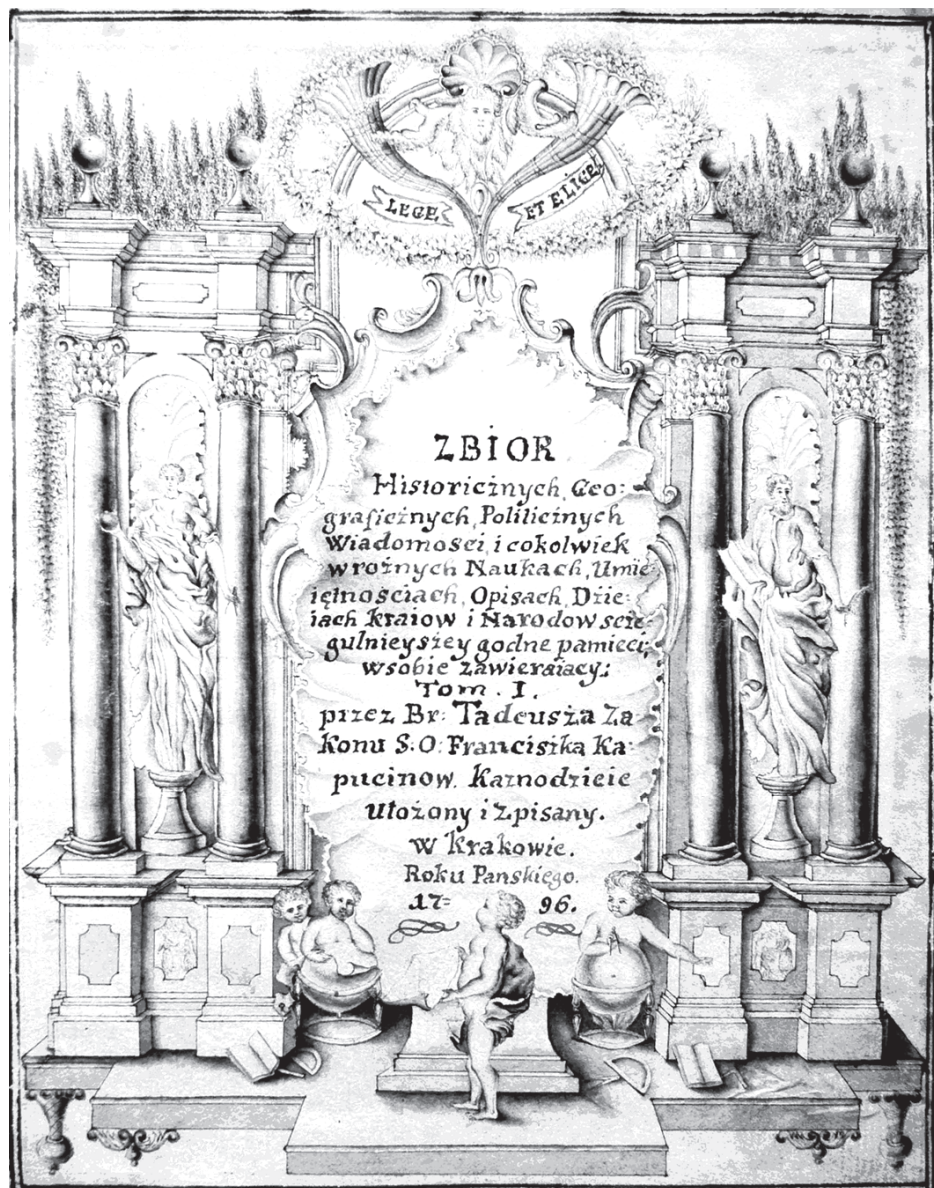 LEGE
ET ELIGE
ZBIOR
Historicżnych, Geo:
graficżnych, Politicżnych
Wiadomosci, i cokolwiek
w rożnych Naukach, Umie
iętnościach, Opisach, Dzie:
iach kraiow i Narodow scże:
gulnieyszey godne pamięci,
w sobie zawieraiący:
Tom. I.
przez Br: Tadeusża Za:
konu S: O: Francisżka Ka:
pucinow. Kaznodzieie
Ułożony i Zpisany.
w Krakowie.
Roku Panskiego.
17= 96.